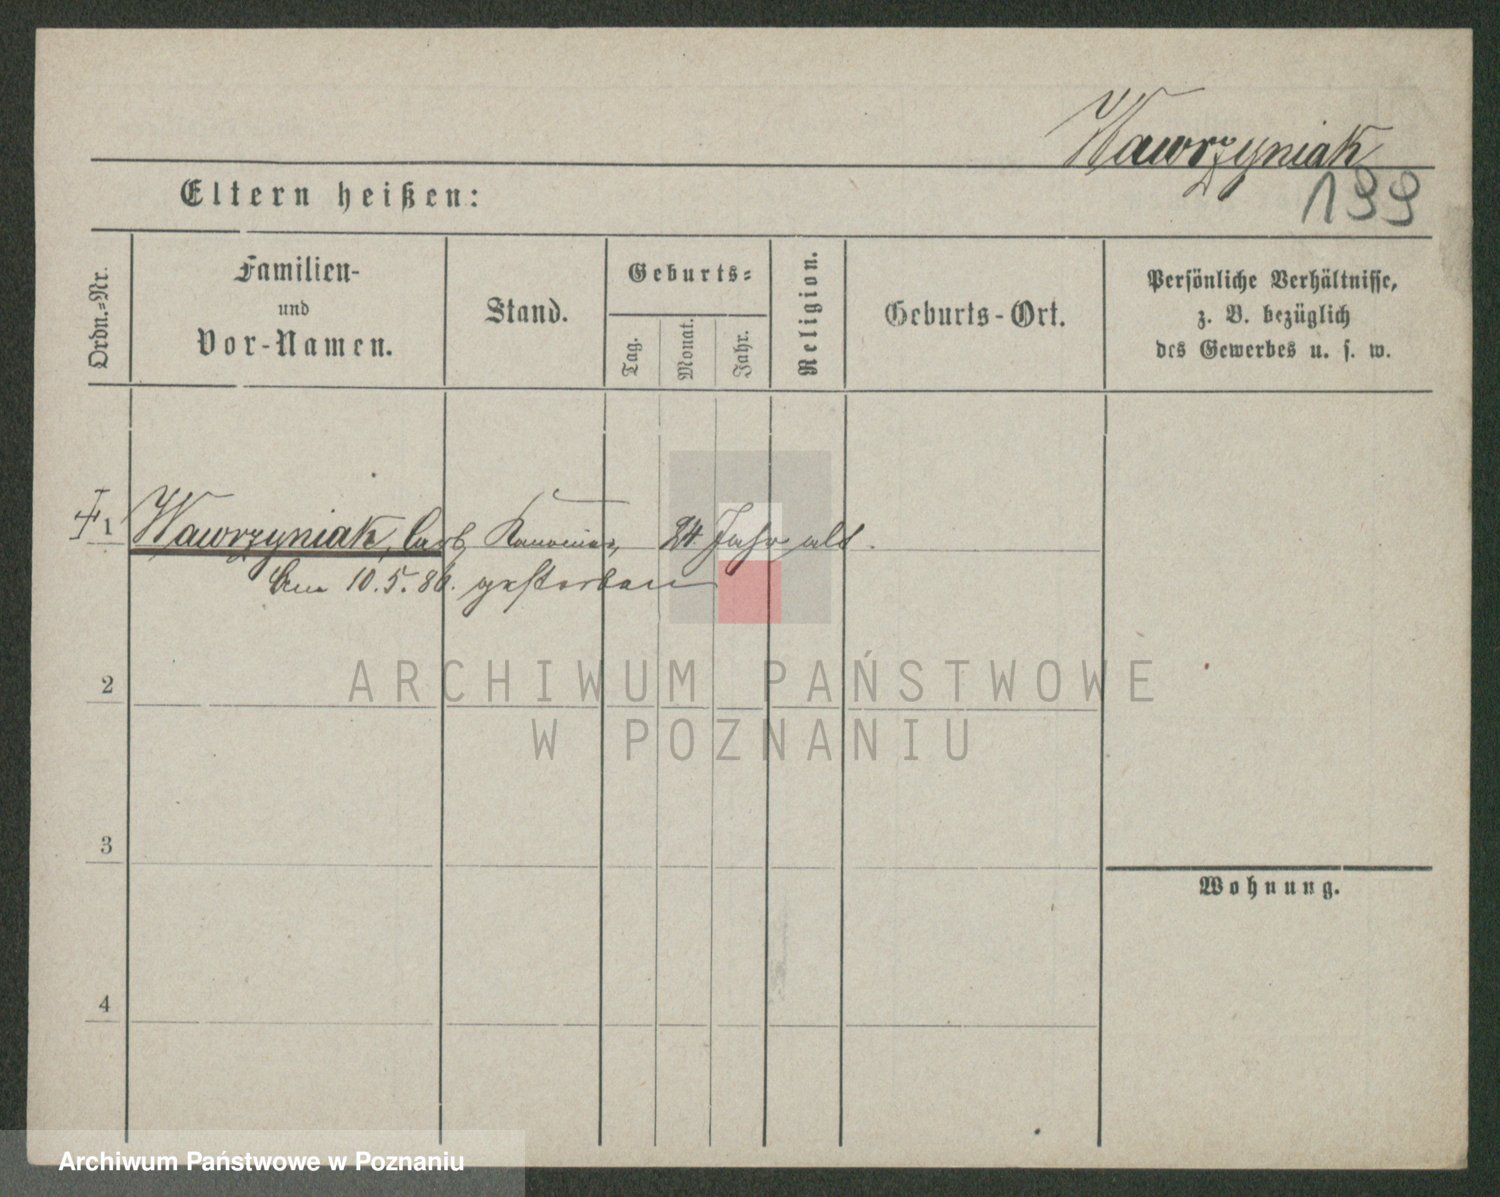 Wawrzyniak
199
Eltern heißen:
Ordn.-Nr.
Familien-
und
Vor-Namen.
Stand.
Geburts-
Tag.
Monat.
Jahr.
Religion.
Geburts-Ort.
Persönliche Verhältnisse,
z. B. bezüglich
des Gewerbes u. s. w.
1 Wawrzyniak, Carl, Kanonier, 24 Jahre alt.
Am 10.5.86. gestorben
2
ARCHIWUM PAŃSTWOWE
W POZNANIU
3
Wohnung.
4
Archiwum Państwowe w Poznaniu